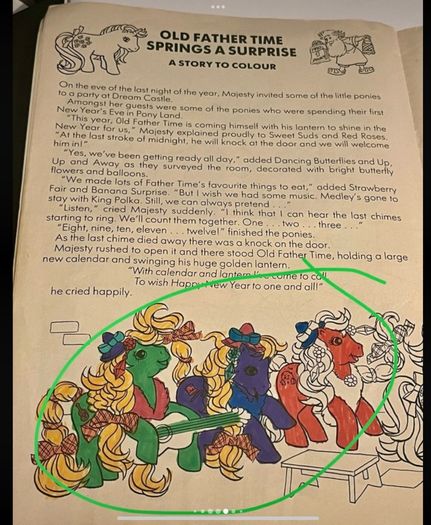 OLD FATHER TIME
SPRINGS A SURPRISE
A STORY TO COLOUR
On the eve of the last night of the year, Majesty invited some of the little ponies
to a party at Dream Castle.
Amongst her guests were some of the ponies who were spending their first
New Year's Eve in Pony Land.
"This year, Old Father Time is coming himself with his lantern to shine in the
New Year for us," Majesty explained proudly to Sweet Suds and Red Roses.
"At the last stroke of midnight, he will knock at the door and we will welcome
him in!"
"Yes, we've been getting ready all day," added Dancing Butterflies and Up,
Up and Away as they surveyed the room, decorated with bright butterfly
flowers and balloons.
"We made lots of Father Time's favourite things to eat," added Strawberry
Fair and Banana Surprise. "But I wish we had some music. Medley's gone to
stay with King Polka. Still, we can always pretend . . ."
"Listen," cried Majesty suddenly. "I think that I can hear the last chimes
starting to ring. We'll count them together. One . . . two . . . three . . ."
"Eight, nine, ten, eleven . . . twelve!" finished the ponies.
As the last chime died away there was a knock on the door.
Majesty rushed to open it and there stood Old Father Time, holding a large
new calendar and swinging his huge golden lantern.
"With calendar and lantern I've come to call
To wish Happy New Year to one and all!"
he cried happily.